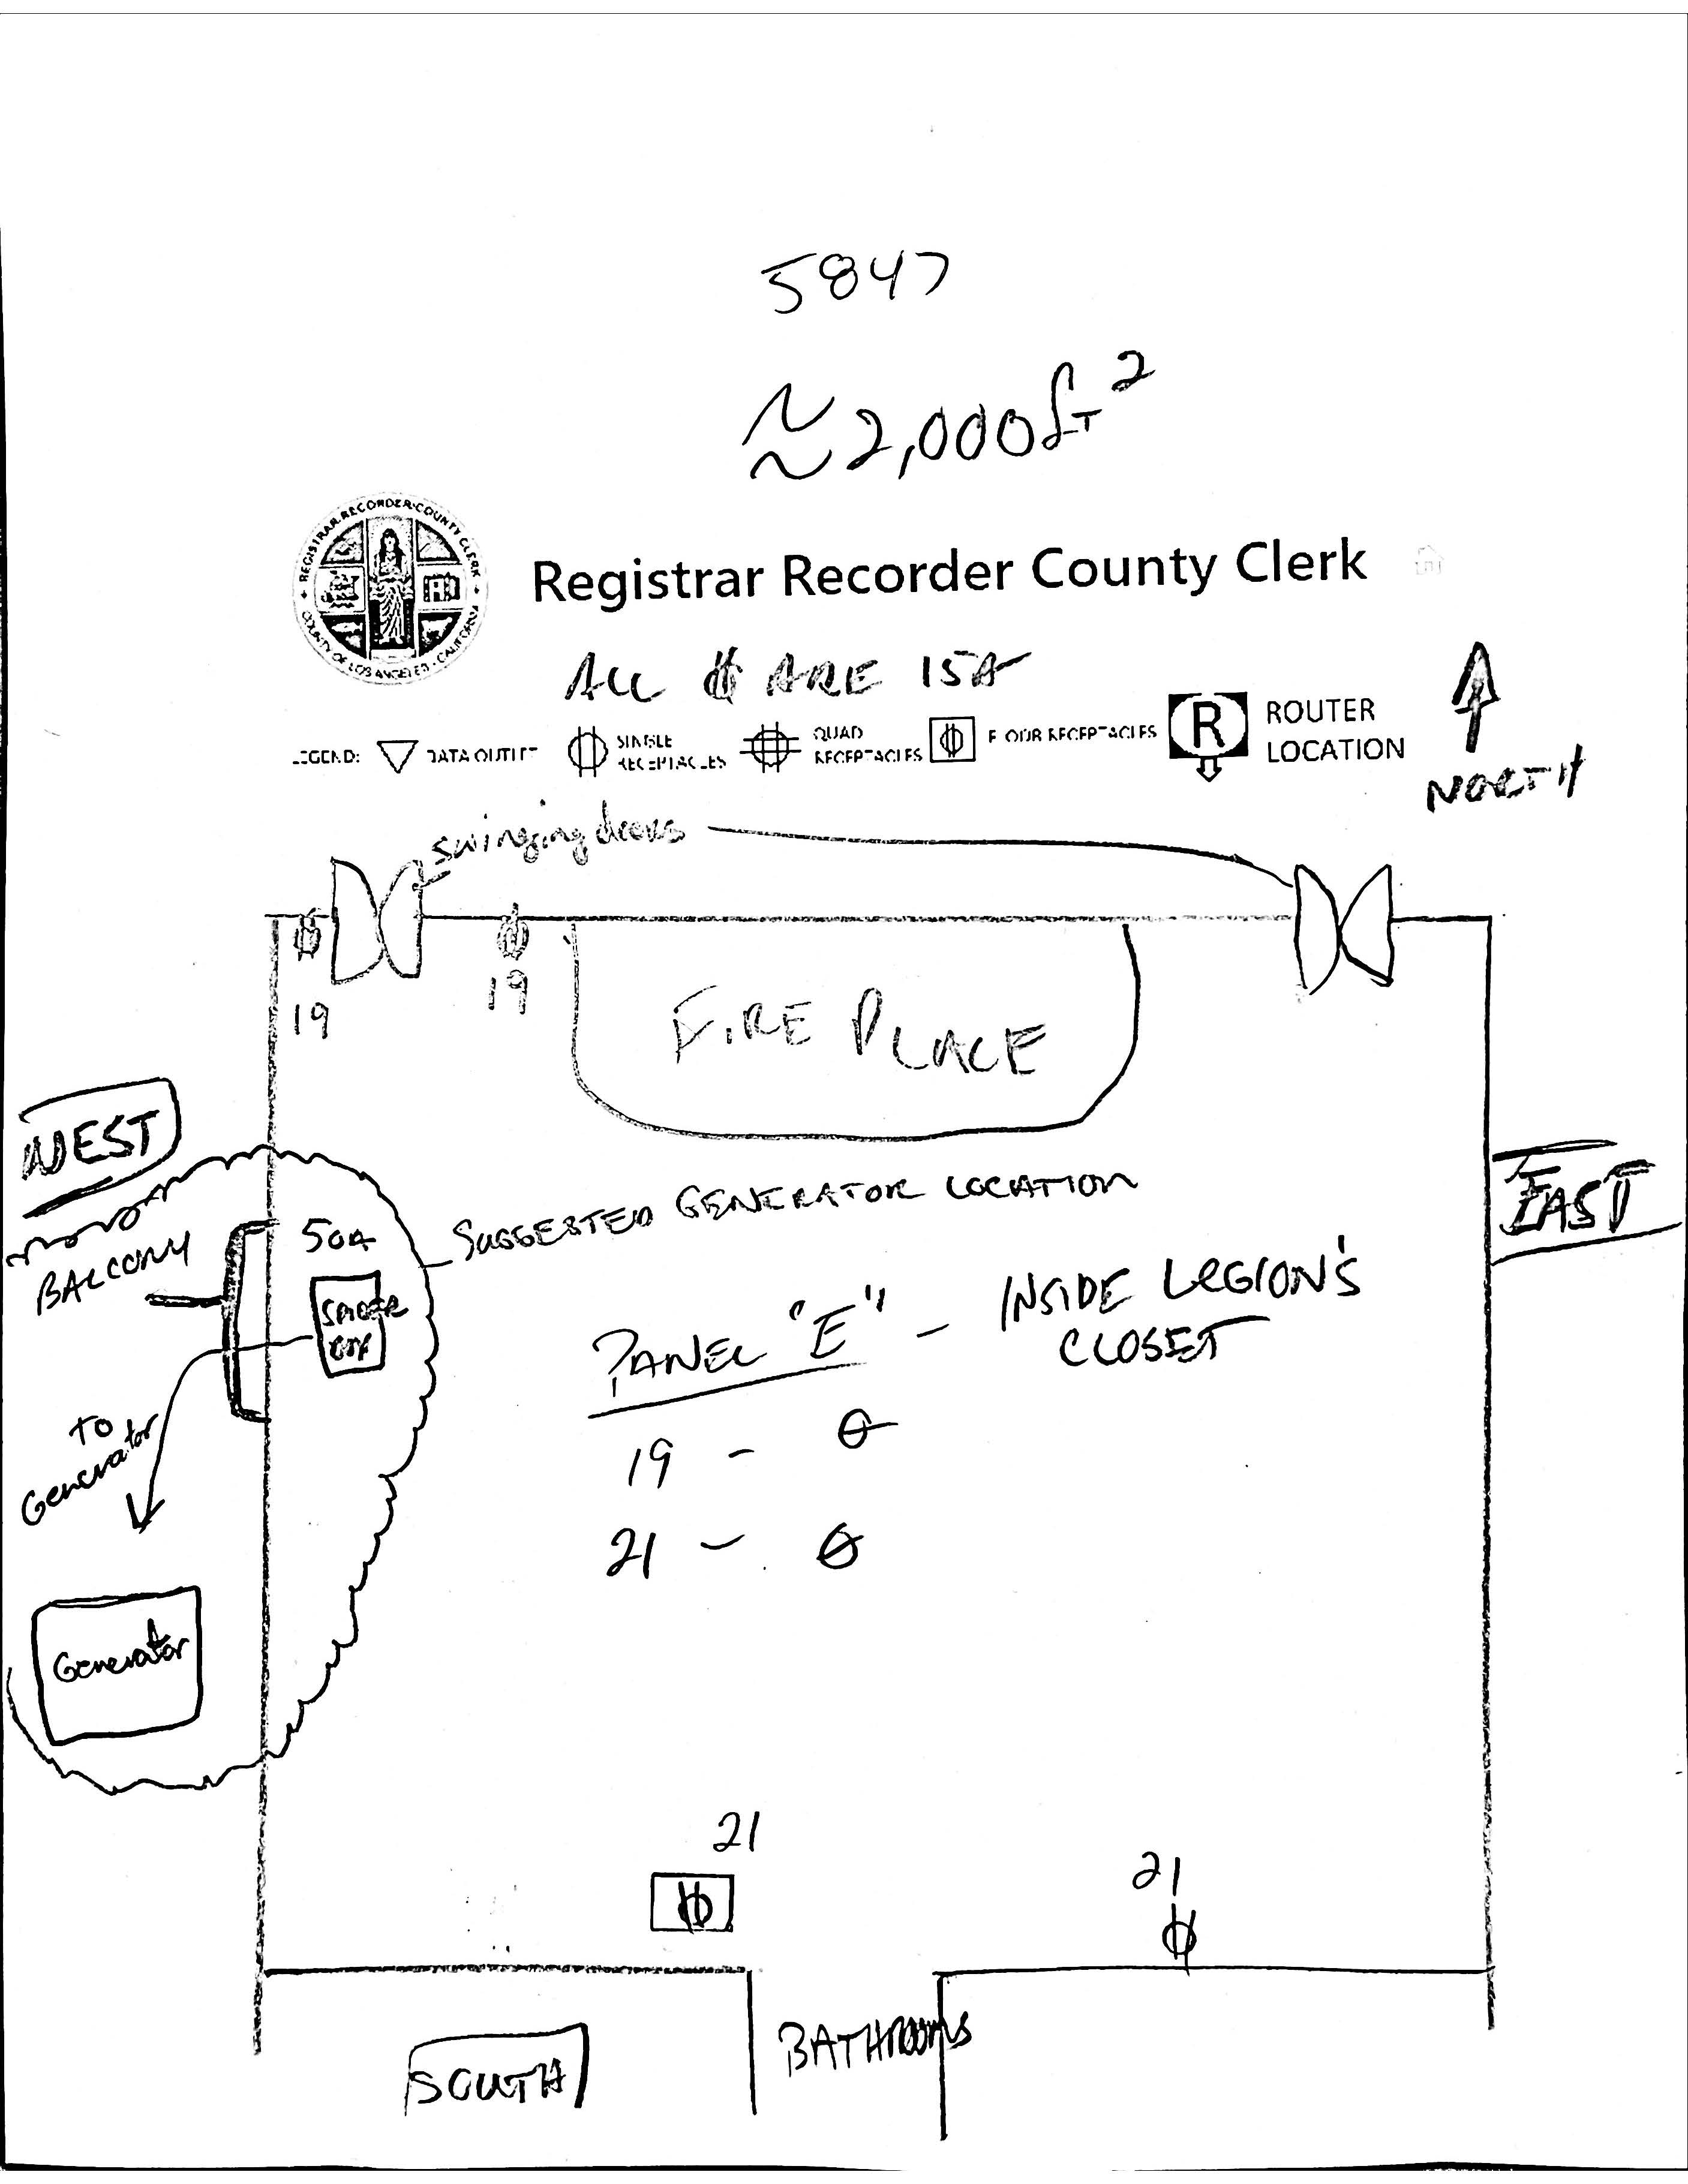 5847
≈2,000ft²
REGISTRAR-RECORDER/COUNTY CLERK
COUNTY OF LOS ANGELES · CALIFORNIA
Registrar Recorder County Clerk
ALL ARE 15A
LEGEND:
DATA OUTLET
SINGLE
RECEPTACLES
QUAD
RECEPTACLES
FLOOR RECEPTACLES
R
ROUTER
LOCATION
NORTH
swinging doors
19
19
FIRE PLACE
WEST
BALCONY
50A
SPIDER
BOX
SUGGESTED GENERATOR LOCATION
EAST
PANEL "E" - INSIDE LEGION'S
CLOSET
19 -
21 -
TO
Generator
Generator
21
21
BATHROOMS
SOUTH